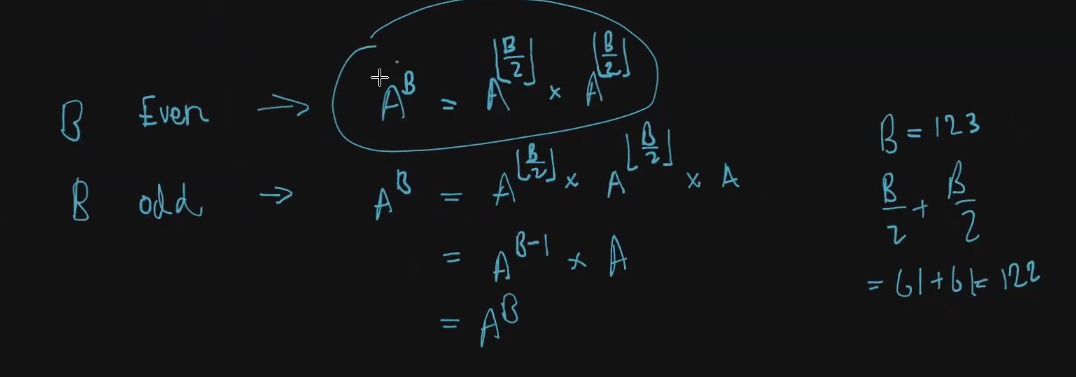 B Even → A^B = A^⌊B/2⌋ × A^⌊B/2⌋
B odd → A^B = A^⌊B/2⌋ × A^⌊B/2⌋ × A
= A^{B-1} × A
= A^B
B = 123
B/2 + B/2
= 61 + 61 = 122